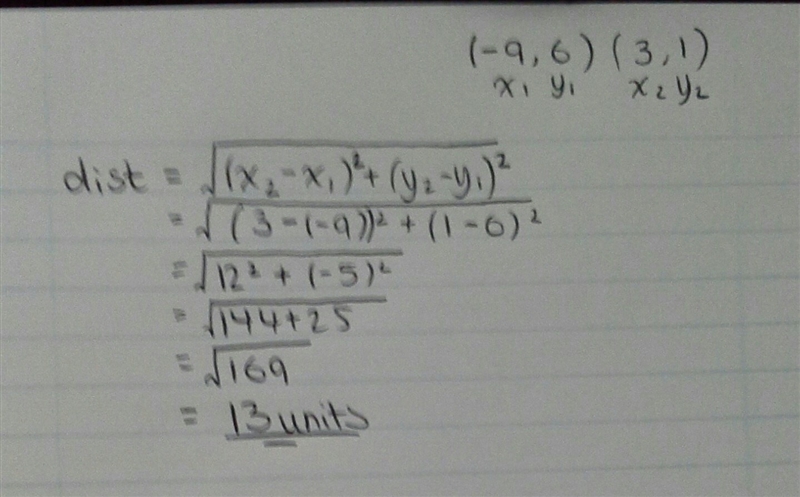 (-9, 6) (3, 1)
x₁ y₁ x₂ y₂
dist = √(x₂ - x₁)² + (y₂ - y₁)²
= √(3 - (-9))² + (1 - 6)²
= √12² + (-5)²
= √144 + 25
= √169
= 13 units